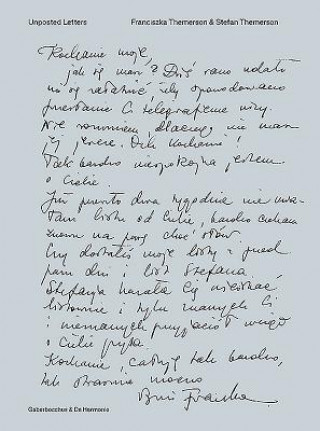 Unposted Letters
Franciszka Themerson & Stefan Themerson
Kochanie moje,
jak się masz? Dziś rano udało
mi się załatwić, żeby spowodowano
przesłanie Ci telegraficznie wizy.
Nie rozumiem, dlaczego nie masz
jej jeszcze.
Tak bardzo niespokojna jestem
o Ciebie.
Już prawie dwa tygodnie nie
listu od Ciebie, bardzo czekam
znowu na parę choć słów.
Czy dostałeś moje listy z przed
paru dni i list Stefana
Stefania kazała Cię
i tylu znanych Ci
i nieznanych przyjaciół
o Ciebie pyta.
Kochanie, całuję tak bardzo,
tak strasznie mocno
Franka
Gaberbocchus & De Harmonie